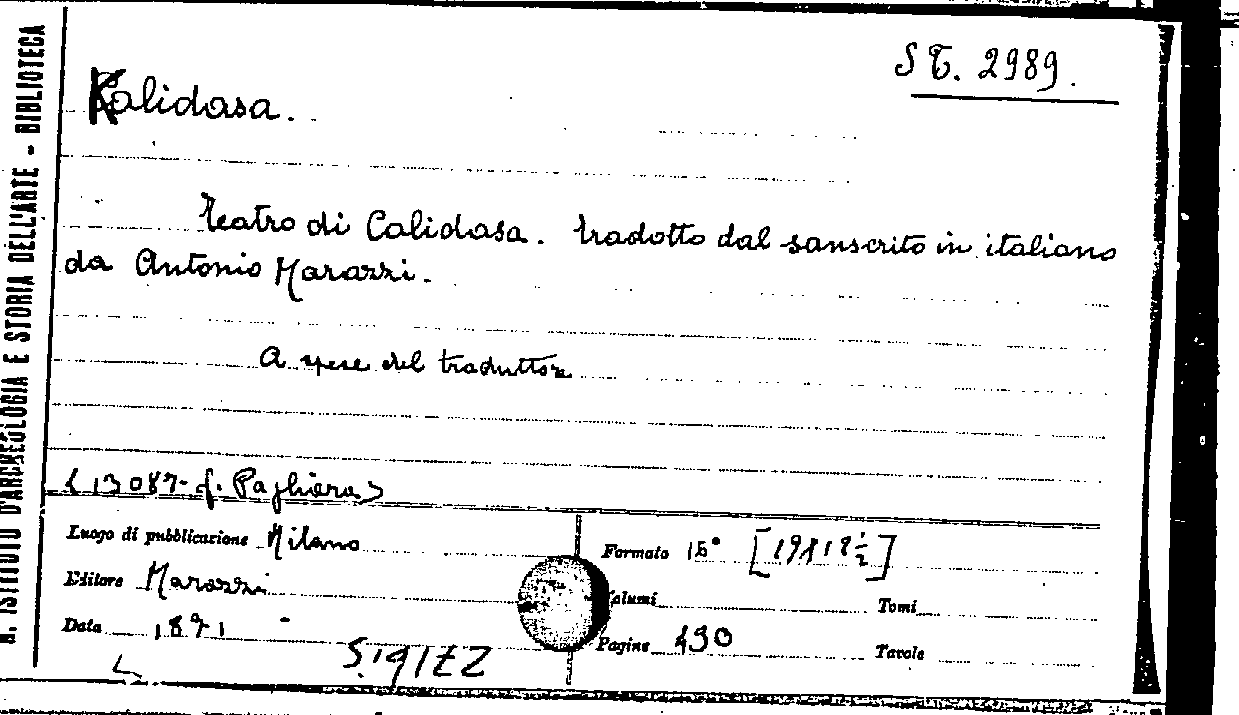 R. ISTITUTO D'ARCHEOLOGIA E STORIA DELL'ARTE - BIBLIOTECA
S T. 2989.
Kalidasa.
Teatro di Calidasa. tradotto dal sanscrito in italiano
da Antonio Marazzi.
A spese del traduttore
<13087- f. Pagliara>
Luogo di pubblicazione Milano
Formato 16°
Editore Marazzi
Volumi Tomi
Data 1871
Pagine 490 Tavole